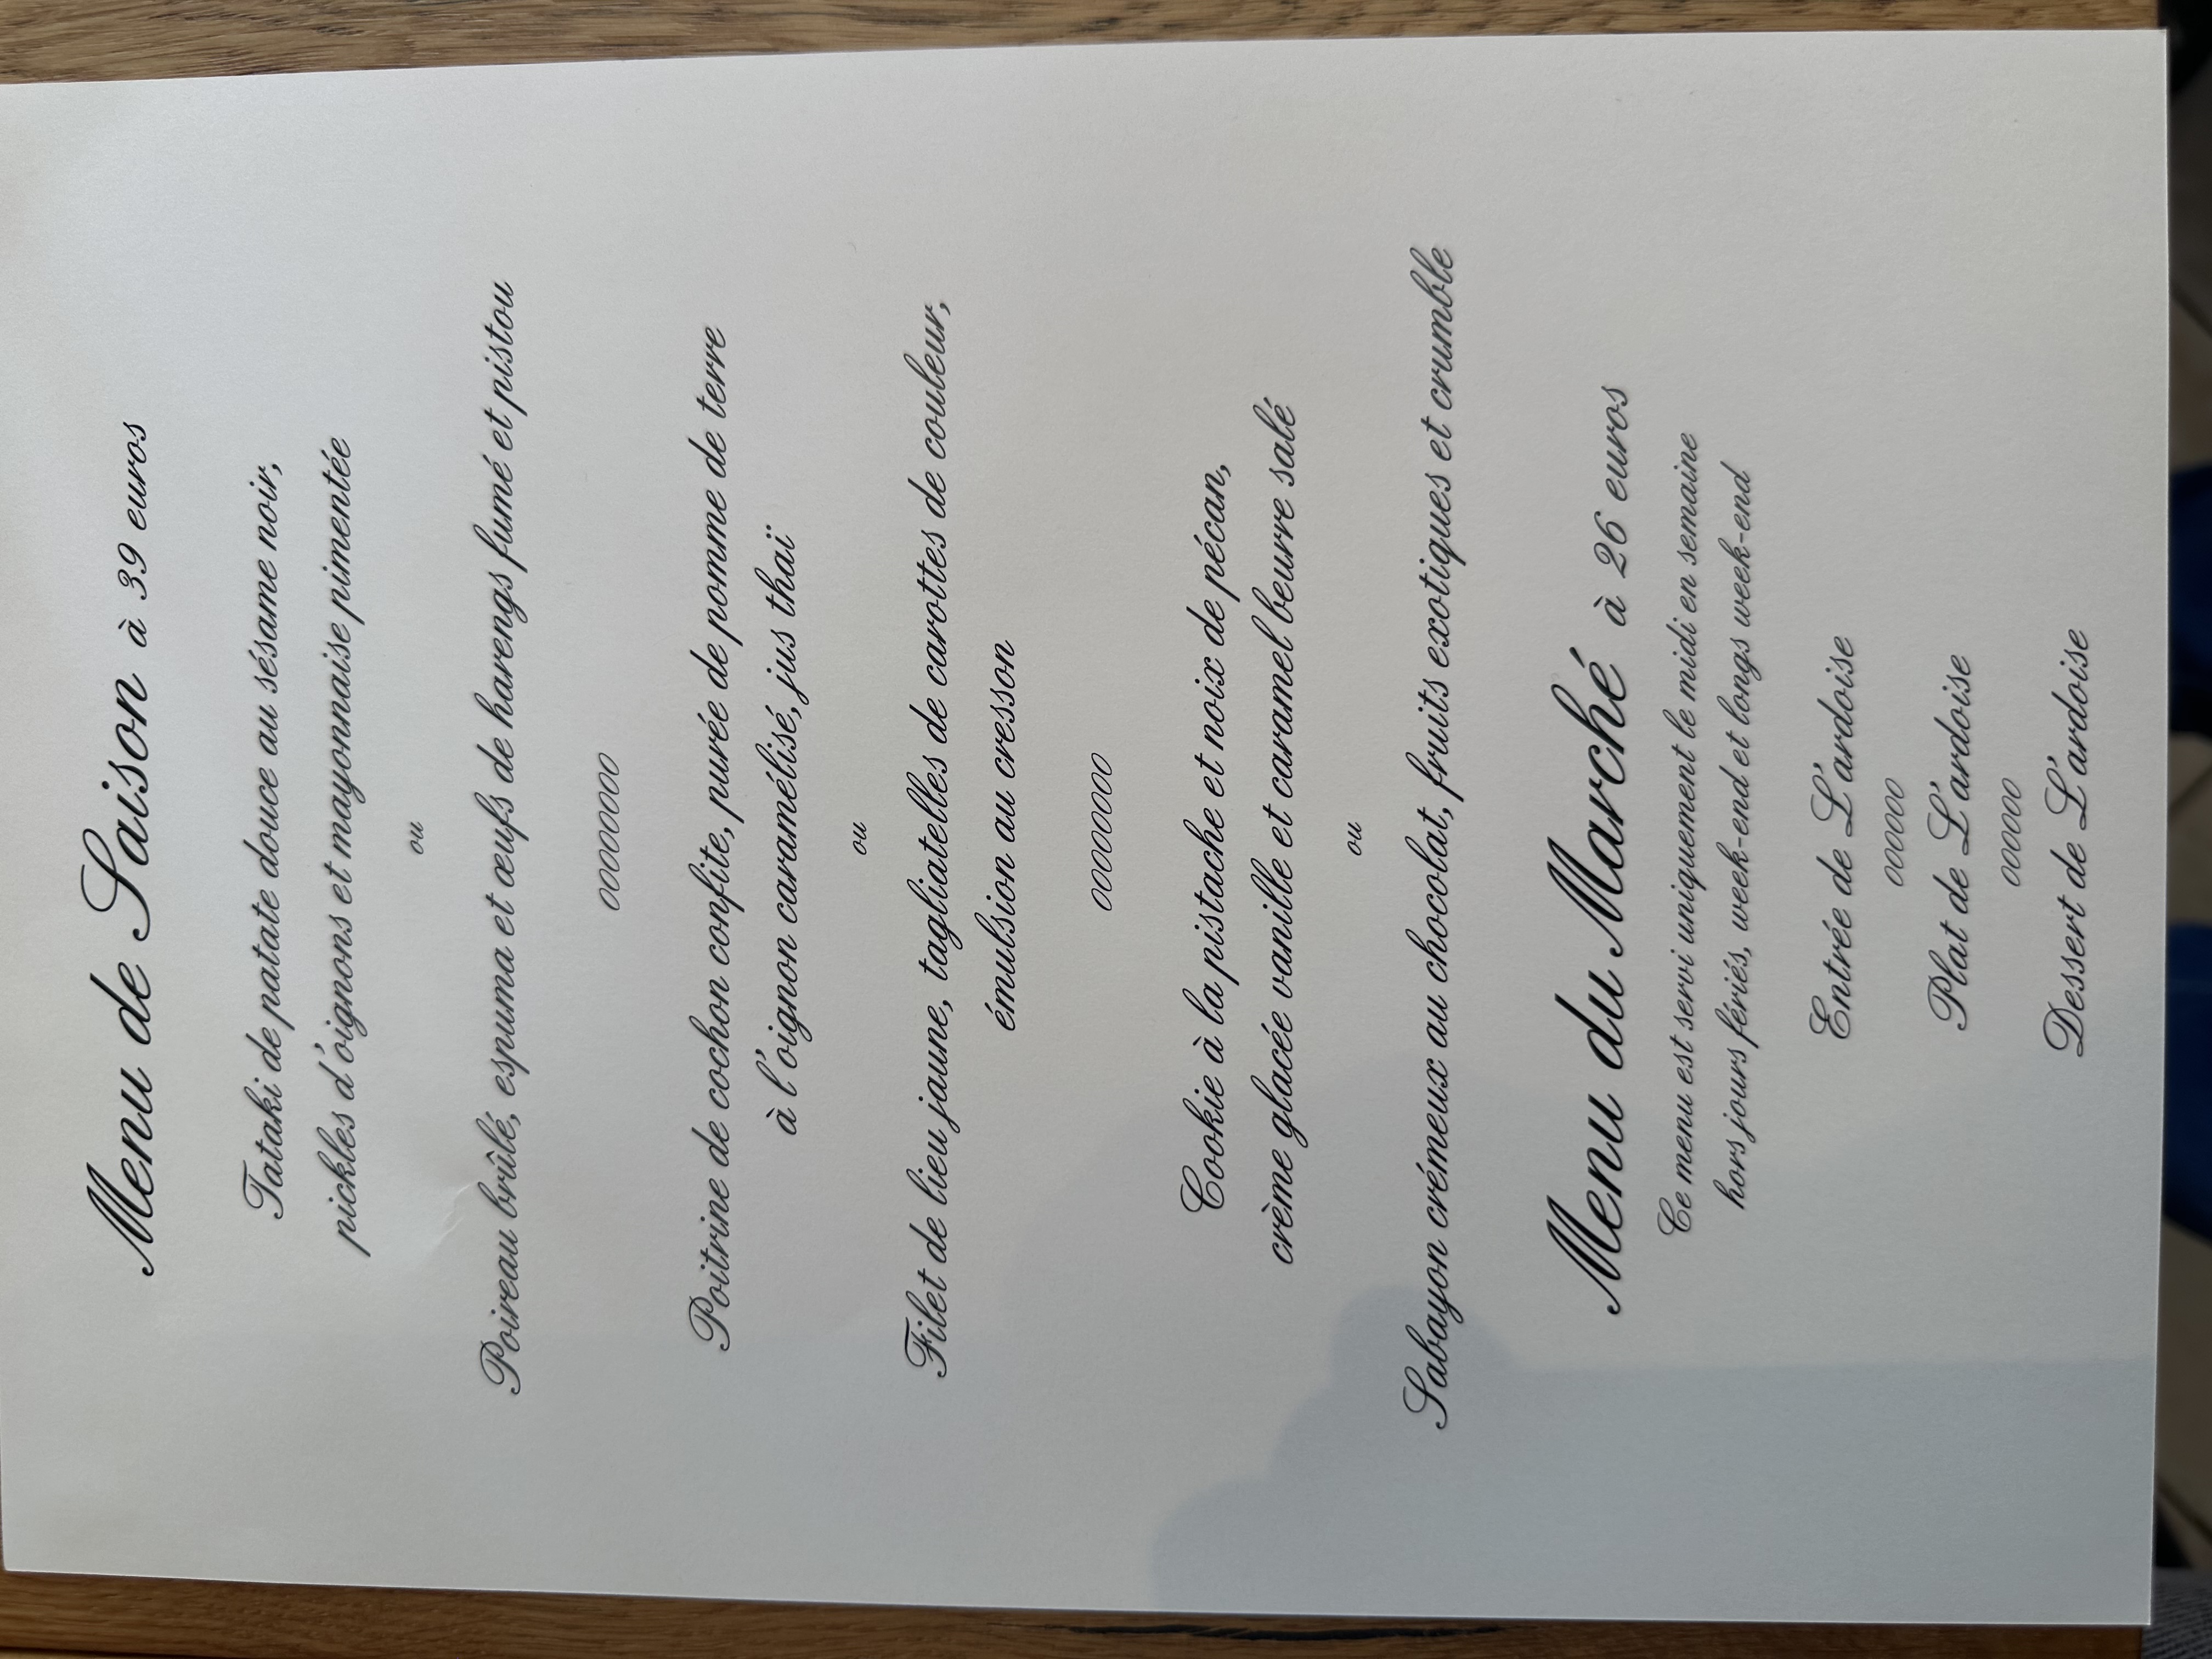 Menu de Saison à 39 euros
Tataki de patate douce au sésame noir,
pickles d'oignons et mayonnaise pimentée
ou
Poireau brûlé, espuma et œufs de harengs fumé et pistou
ooooooo
Poitrine de cochon confite, purée de pomme de terre
à l'oignon caramélisé, jus thaï
ou
Filet de lieu jaune, tagliatelles de carottes de couleur,
émulsion au cresson
ooooooo
Cookie à la pistache et noix de pécan,
crème glacée vanille et caramel beurre salé
ou
Sabayon crémeux au chocolat, fruits exotiques et crumble
Menu du Marché à 26 euros
Ce menu est servi uniquement le midi en semaine
hors jours fériés, week-end et longs week-end
Entrée de L'ardoise
oooooo
Plat de L'ardoise
oooooo
Dessert de L'ardoise